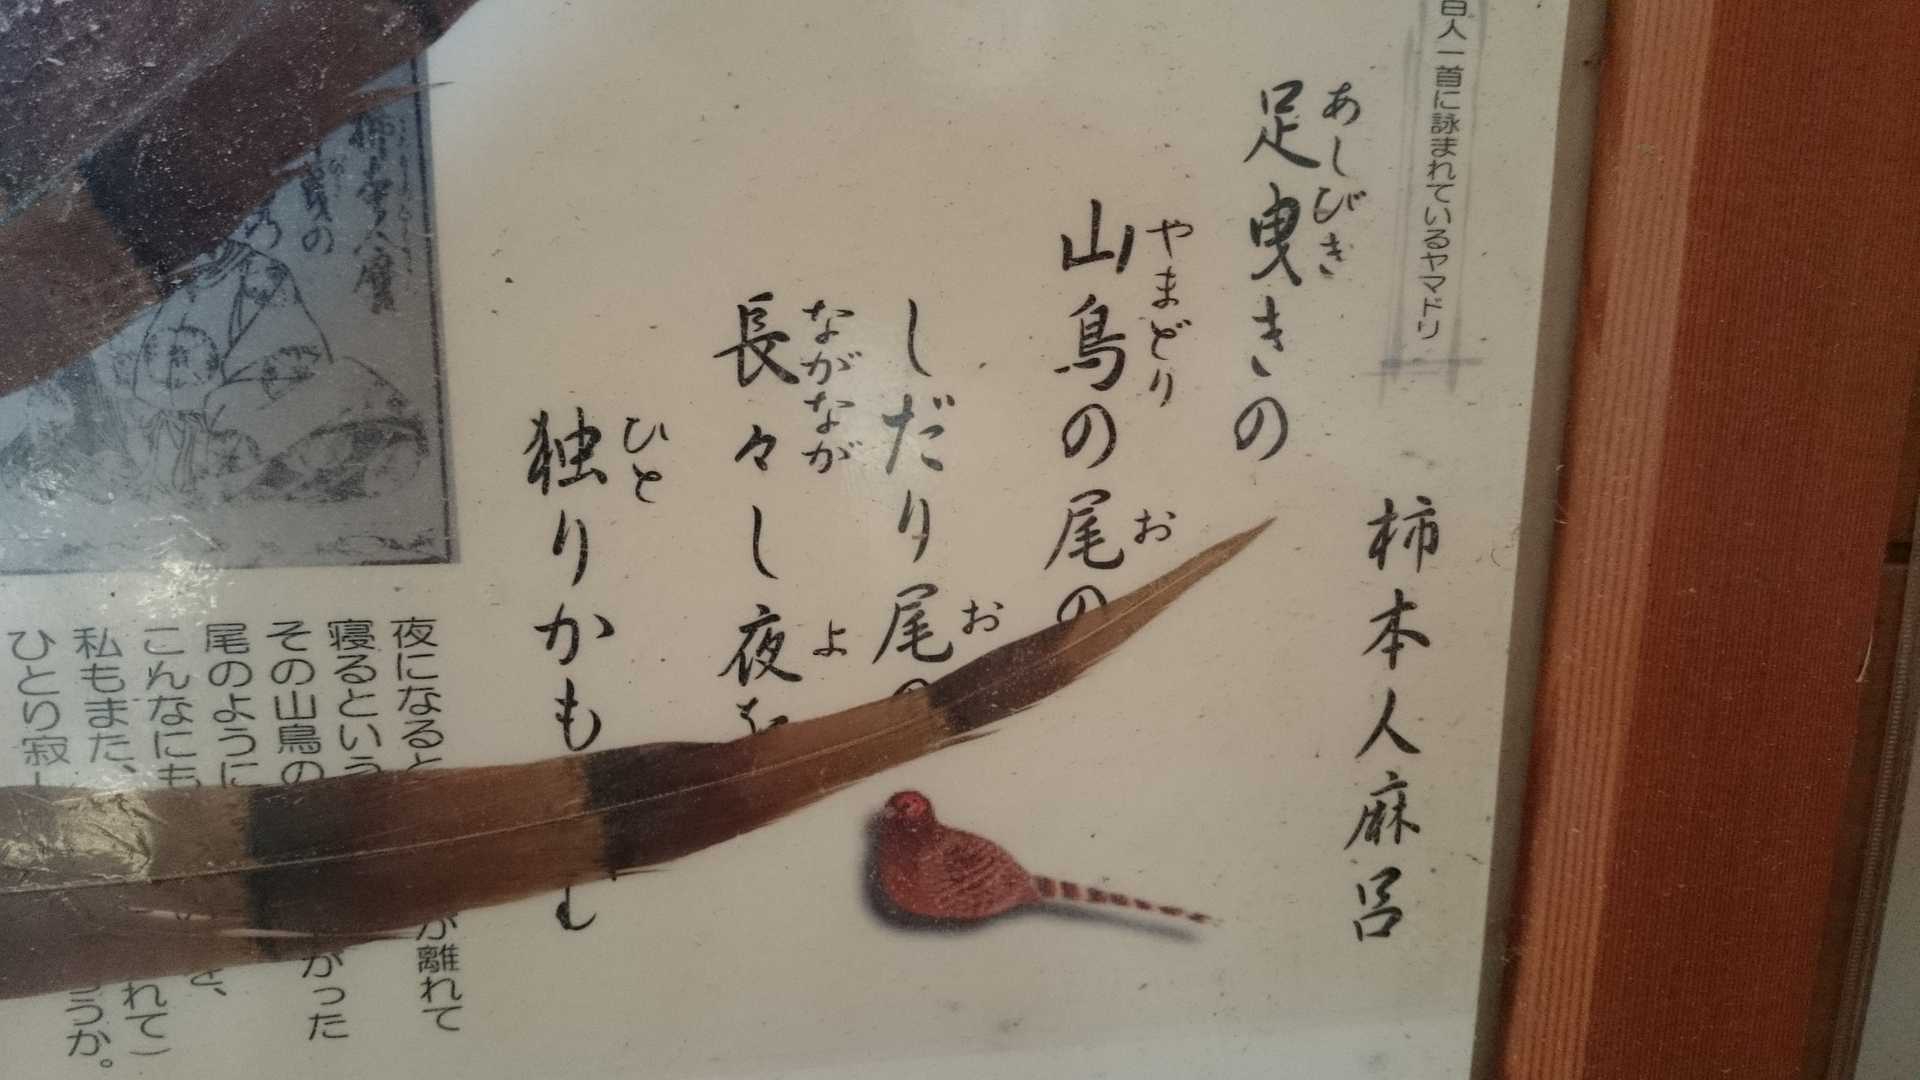 百人一首に詠まれているヤマドリ
柿本人麻呂
足曳きの
あしびき
山鳥の尾の
やまどり
お
しだり尾の
お
長々し夜を
ながなが
よ
独りかも
ひと
む
夜になると
が離れて
寝るという
その山鳥の
がった
尾のように
を、
こんなにも
れて)
私もまた、
うか。
ひとり寂し